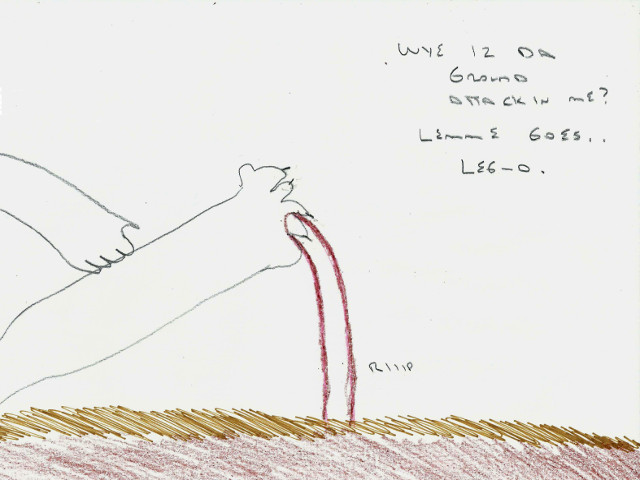 WYE IZ DA
GROUND
ATTACKIN ME?
LEMME GOES..
LEG-O.
RIIIP